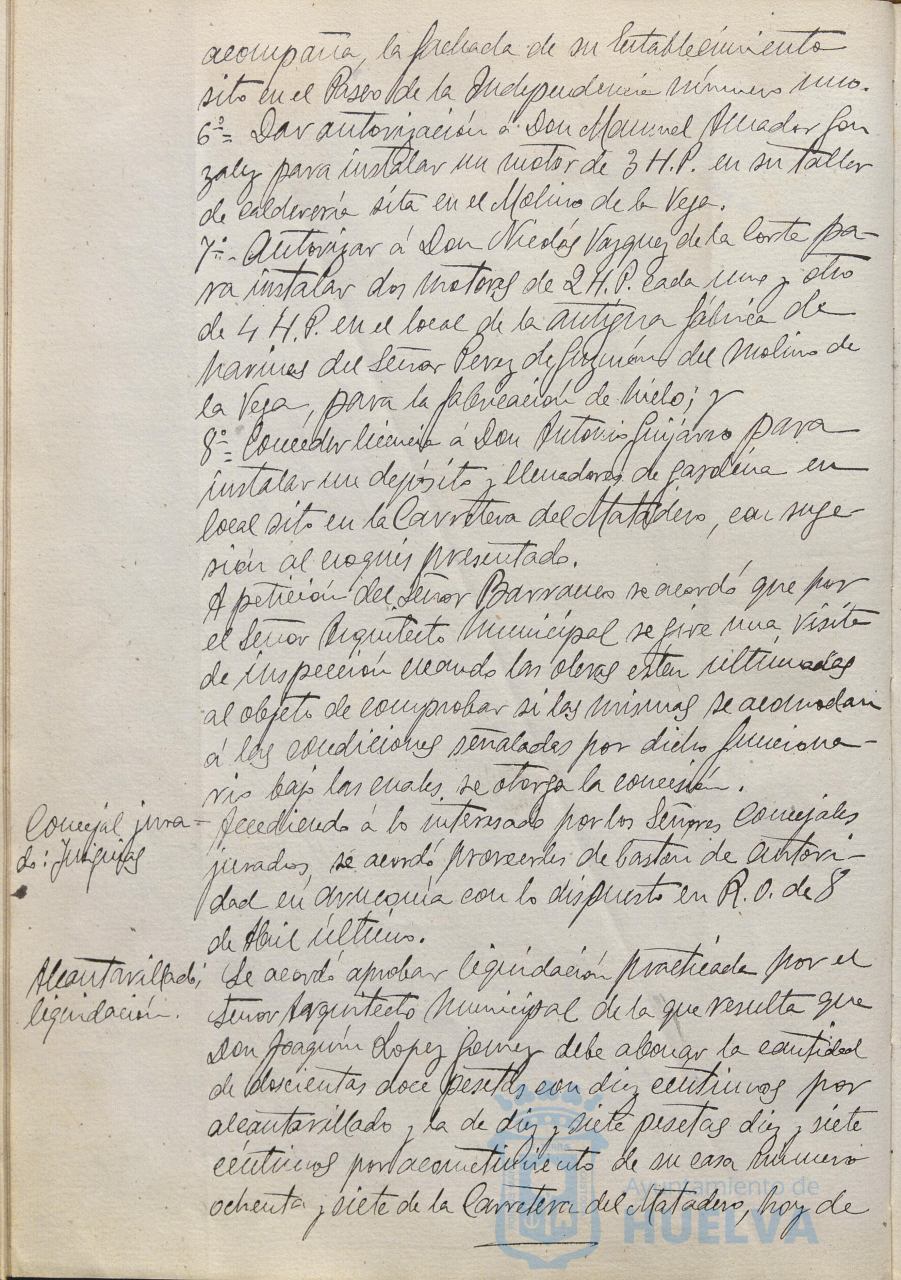 acompaña, la fachada de su Establecimiento
sito en el Paseo de la Independencia número uno.
6º= Dar autorización á Don Manuel Amador Gon
zalez para instalar un motor de 3 H.P. en su taller
de calderería sita en el Molino de la Vega.
7º- Autorizar á Don Nicolás Vazquez de la Corte pa-
ra instalar dos motores de 2 H.P. cada uno y otro
de 4 H.P. en el local de la antigua fábrica de
harinas del Señor Perez de Guzmán del Molino de
la Vega, para la fabricación de hielo; y
8º= Conceder licencia á Don Antonio Guijarro para
instalar un depósito y llenadores de gasolina en
local sito en la Carretera del Matadero, con suge-
sión al croquis presentado.
A petición del Señor Barranco se acordó que por
el Señor Arquitecto Municipal se gire una visita
de inspección cuando las obras esten ultimadas
al objeto de comprobar si las mismas se acomodan
á las condiciones señaladas por dicho funciona-
rio bajo las cuales se otorga la concesión.
Concejal jura-
do: Insignias
Accediendo á lo interesado por los Señores Concejales
jurados, se acordó proveerles de bastón de autori-
dad en armonía con lo dispuesto en R.O. de 8
de Abril último.
Alcantarillado;
liquidación.
Se acordó aprobar liquidación practicada por el
Señor Arquitecto Municipal de la que resulta que
Don Joaquín Lopez Gomez debe abonar la cantidad
de doscientas doce pesetas con diez centimos por
alcantarillado y la de diez y siete pesetas diez y siete
centimos por acometimiento de su casa número
ochenta y siete de la Carretera del Matadero, hoy de
Ayuntamiento de
HUELVA